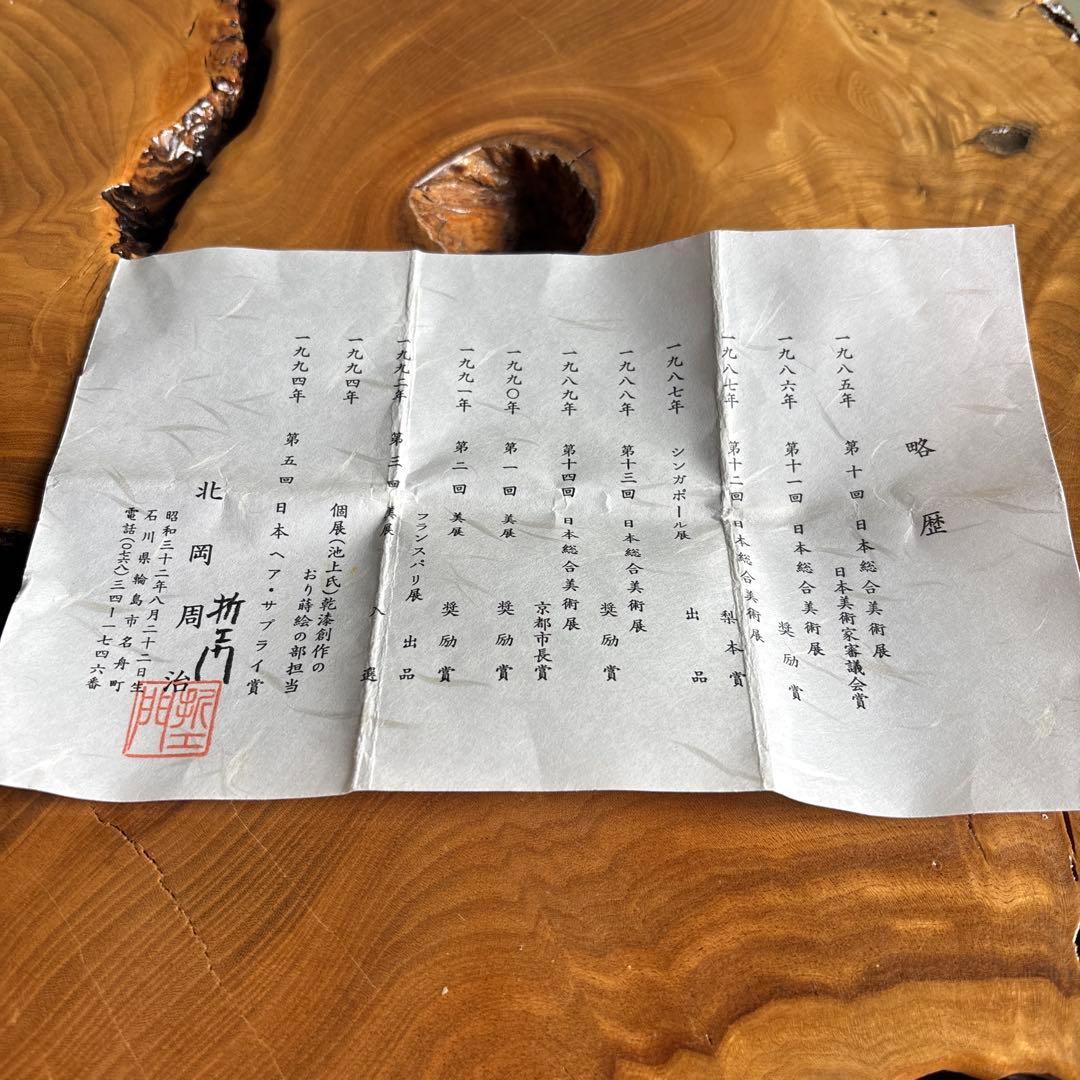 略歴
一九八五年 第十回 日本総合美術展
日本美術家審議会賞
一九八六年 第十一回 日本総合美術展
奨励賞
一九八七年 第十二回 日本総合美術展
梨本賞
一九八七年 シンガポール展
出品
一九八八年 第十三回 日本総合美術展
奨励賞
一九八九年 第十四回 日本総合美術展
京都市長賞
一九九〇年 第一回 美展
奨励賞
一九九一年 第二回 美展
奨励賞
フランスパリ展
出品
一九九二年 第三回 美展
入選
一九九四年 個展(池上氏)乾漆創作の
おり蒔絵の部担当
一九九四年 第五回 日本ヘア・サプライ賞
北岡周治
昭和三十二年八月二十二日生
石川県輪島市名舟町
電話(〇七六八)三四ー一七四六番